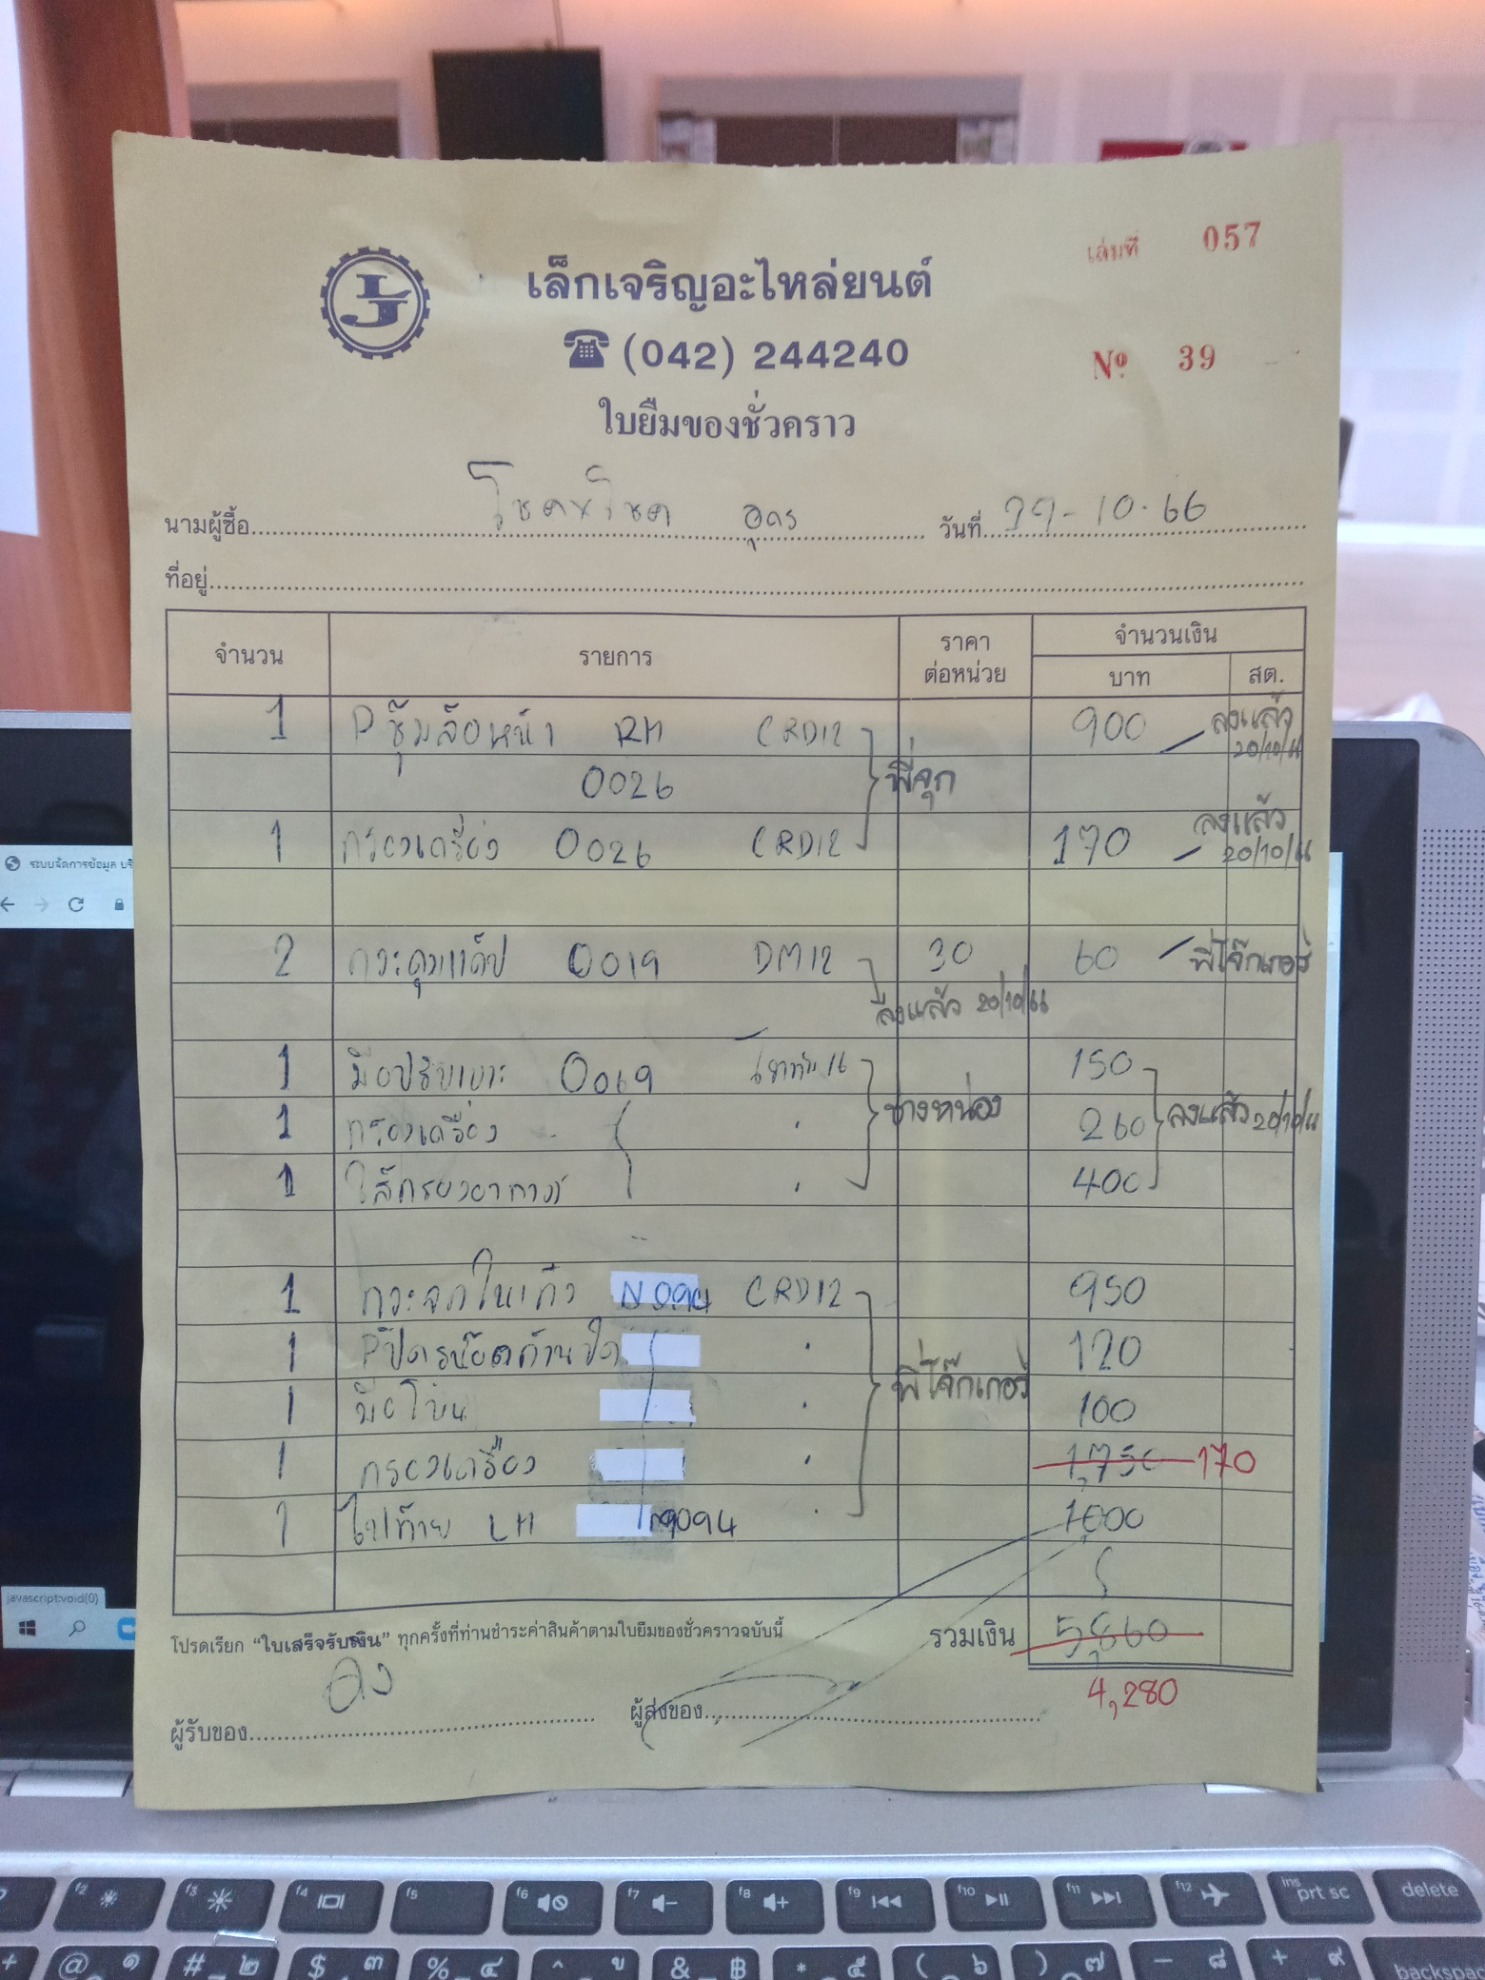 เล่มที่ 057
เล็กเจริญอะไหล่ยนต์
LJ
☎ (042) 244240
№ 39
ใบยืมของชั่วคราว
นามผู้ซื้อ โชคxโชค อุดร วันที่ 19-10-66
ที่อยู่
จำนวน รายการ ราคาต่อหน่วย จำนวนเงิน
บาท สต.
1 Pซุ้มล้อหน้า RH CRD12 900 ลงแล้ว 20/10/66
0026 พี่จุก
1 กรองเครื่อง 0026 CRD12 170 ลงแล้ว 20/10/66
2 กระดุมแค๊ป 0019 DM12 30 60 พี่โจ๊กเกอร์
ลงแล้ว 20/10/66
1 มือปรับเบาะ 0069 150
1 กรองเครื่อง ช่างหน่อง 260 ลงแล้ว 20/10/66
1 ไส้กรองอากาศ 400
1 กระจกในเก๋ง N094 CRD12 950
1 120
1 พี่โจ๊กเกอร์ 100
1 กรองเครื่อง 1,750 170
1 ไฟท้าย LH N094 1,000
โปรดเรียก "ใบเสร็จรับเงิน" ทุกครั้งที่ท่านชำระค่าสินค้าตามใบยืมของชั่วคราวฉบับนี้ รวมเงิน 5,860
4,280
ผู้รับของ ผู้ส่งของ
ระบบจัดการข้อมูล
javascript:void(0)
f2 f3 f4 f5 f6 f7 f8 f9 f10 f11 f12 ins prt sc delete
+ @ ๑ # ๒ $ ๓ % ๔ ^ ข & ฿ * ๕ ( ๖ ) ๗ - ๘ + ๙ backspac